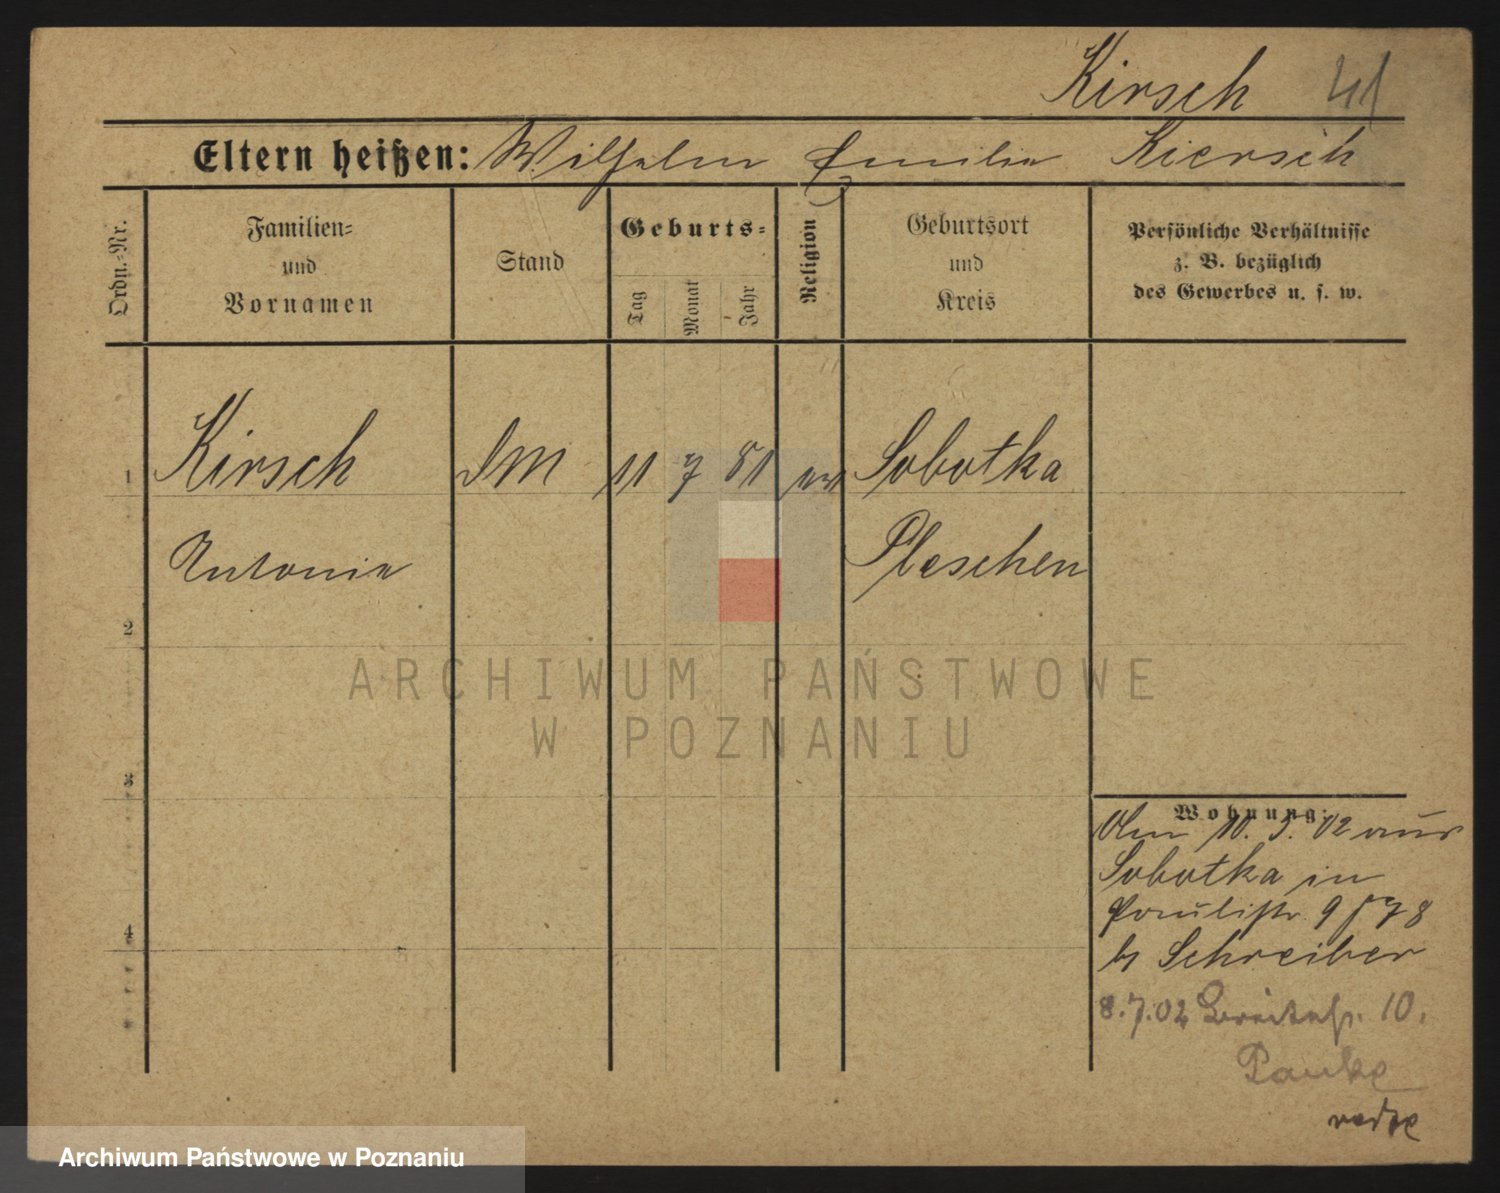 Kirsch 41
Eltern heißen: Wilhelm Emilie Kiersch
Ordn.-Nr.
Familien-
und
Vornamen
Stand
Geburts-
Tag
Monat
Jahr
Religion
Geburtsort
und
Kreis
Persönliche Verhältnisse
z. B. bezüglich
des Gewerbes u. s. w.
1 Kirsch DM 11 7 81 ev Sobotka
Antonie Pleschen
2
ARCHIWUM PAŃSTWOWE
W POZNANIU
3
Wohnung:
10. 3. 02 aus
Sobotka in
Paulistr. 9
b Schreiber
8.7.02 Breitestr. 10.
4
Archiwum Państwowe w Poznaniu